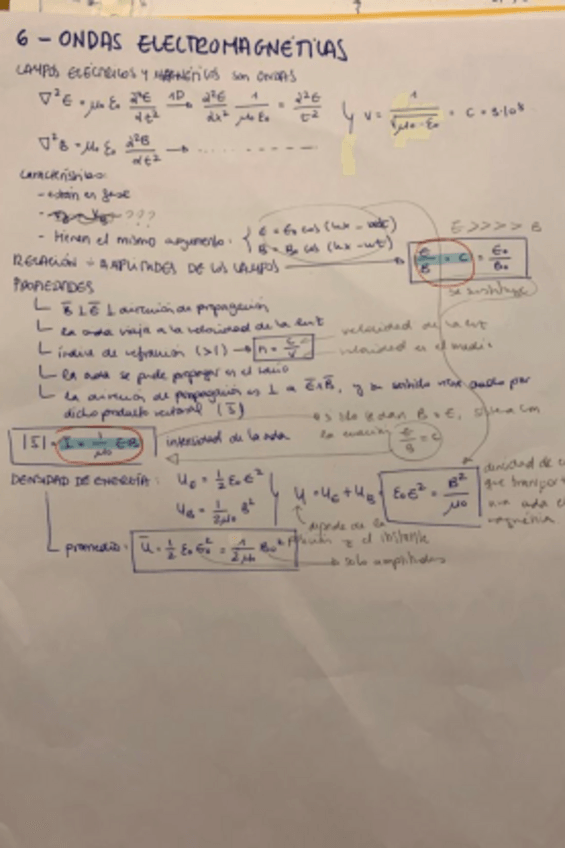 6 - ONDAS ELECTROMAGNÉTICAS
CAMPOS ELÉCTRICOS Y MAGNÉTICOS SON ONDAS
∇²E = μ₀ ε₀ ∂²E/∂t² →1D ∂²E/∂x² 1/μ₀ε₀ = ∂²E/t² } v = 1/√μ₀·ε₀ = c = 3·10⁸
∇²B = μ₀ ε₀ ∂²B/∂t² → ..............
Características:
- están en fase
- ???
- tienen el mismo argumento: { E = E₀ cos (kx - wt)
B = B₀ cos (kx - wt)
E >>>> B
RELACIÓN ÷ AMPLITUDES DE LOS CAMPOS → E/B = c = E₀/B₀
se sustituye
PROPIEDADES
B̄ ⊥ Ē ⊥ dirección de propagación
la onda viaja a la velocidad de la luz
índice de refracción (>1) → n = c/v
velocidad de la luz
velocidad en el medio
la onda se puede propagar en el vacío
la dirección de propagación es ⊥ a ĒxB̄, y su sentido viene dado por
dicho producto vectorial (S̄)
|S̄| = I = 1/μ₀ EB intensidad de la onda
si solo te dan B o E,
la ecuación E/B = c
DENSIDAD DE ENERGÍA: u_E = 1/2 ε₀E²
u_B = 1/2μ₀ B² } u = u_E + u_B = ε₀E² = B²/μ₀
densidad de e
que transport
una onda e
magnética
depende de la
posición y el instante
promedio: ū = 1/2 ε₀E₀² = 1/2μ₀ B₀² → solo amplitudes